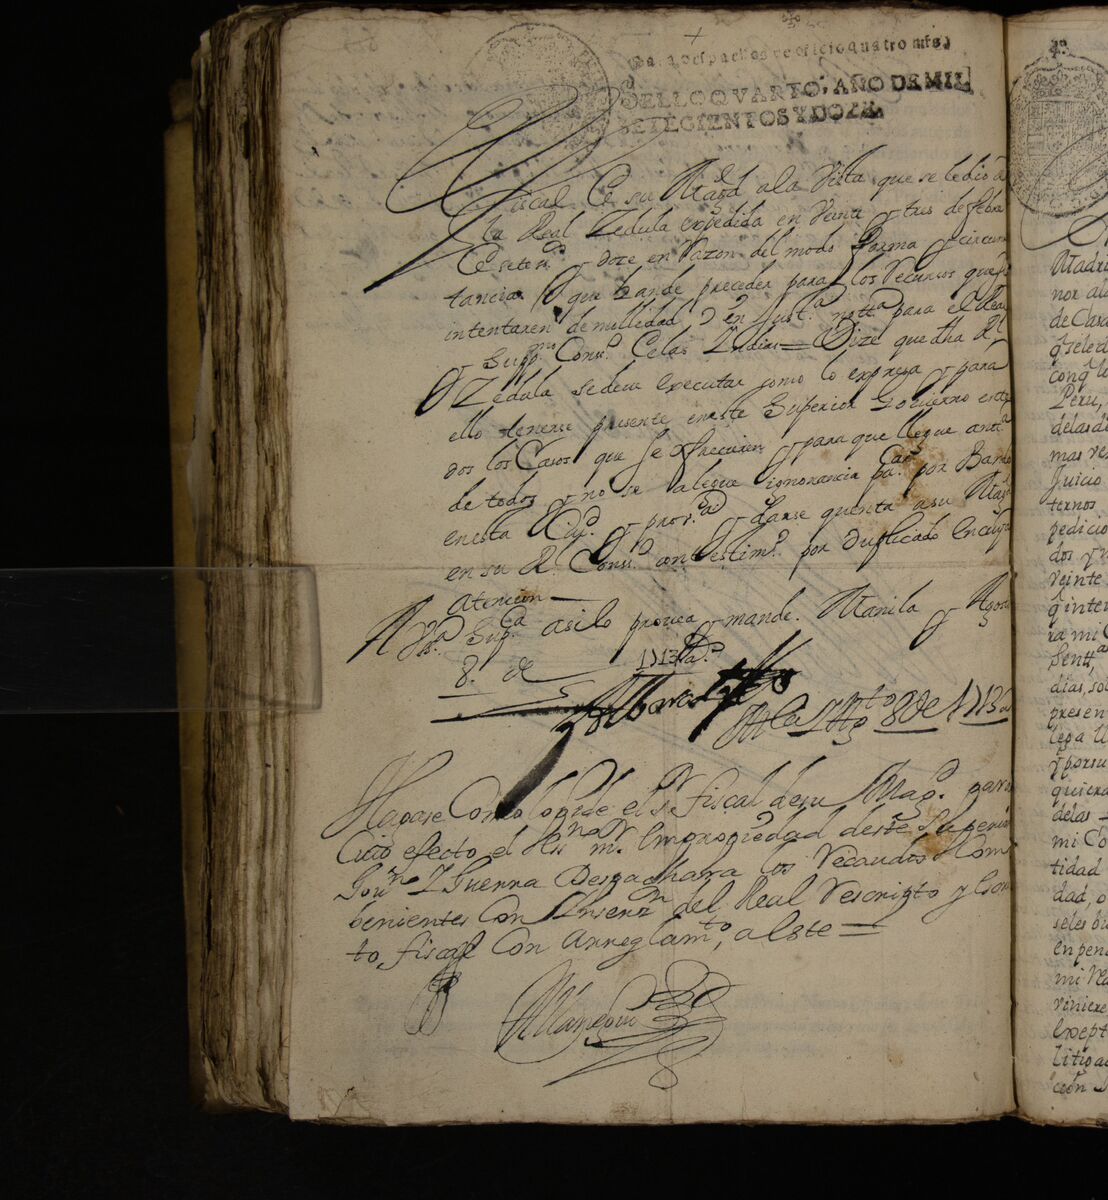 Para despachos de oficio quatro mrs.
SELLO QVARTO, AÑO DE MIL
SETECIENTOS Y DOZE.
fiscal de su Magd a la Vista que se le dio a
la Real Zedula expedida en Veinte y tres de febr
de setecs y doze en Razon del modo forma y circuns
tancias que han de preceder para los Recursos que se
intentaren de nullidad en just.a nott.a para el Rea
y Supp.mo Cons.o de las Indias = Dize que dha Rl
Zedula se deve executar como lo expresa y para
ello tenerse presente en este Superior Govierno en to
dos los Casos que se ofrecieren y para que llegue a not.a
de todos y no se alegue ignorancia por Bando
en esta Cap.d y prov.as y darse quenta a su Mag.d
en su Rl Cons.o con testim.o por duplicado en cuya
atencion
A Vs.a Sup.ca asi lo provea y mande. Manila y Agosto
8. de 1713 a.s
Mla y Ag.to 8 de 1713 a.s
Hagase Como lo pide el Sr fiscal de su Mag.d para
Cuio efecto el Ess.no m.r en propiedad deste Superior
Gov.no y Guerra Despachara los Recaudos Com
benientes Con Insersn del Real Rescripto y Escri
to, fiscal Con arreglam.to, a Este =
Madri
nor al
de Cas
Peru,
delas de
mas re
Juicio
ternos
pedicio
dos y
veinte
q inter
ra mi C
dias, so
presen
y por su
quiera
delas
mi Co
tidad
dad, o
en pen
mi Re
viniere
Exept
litiga
cion